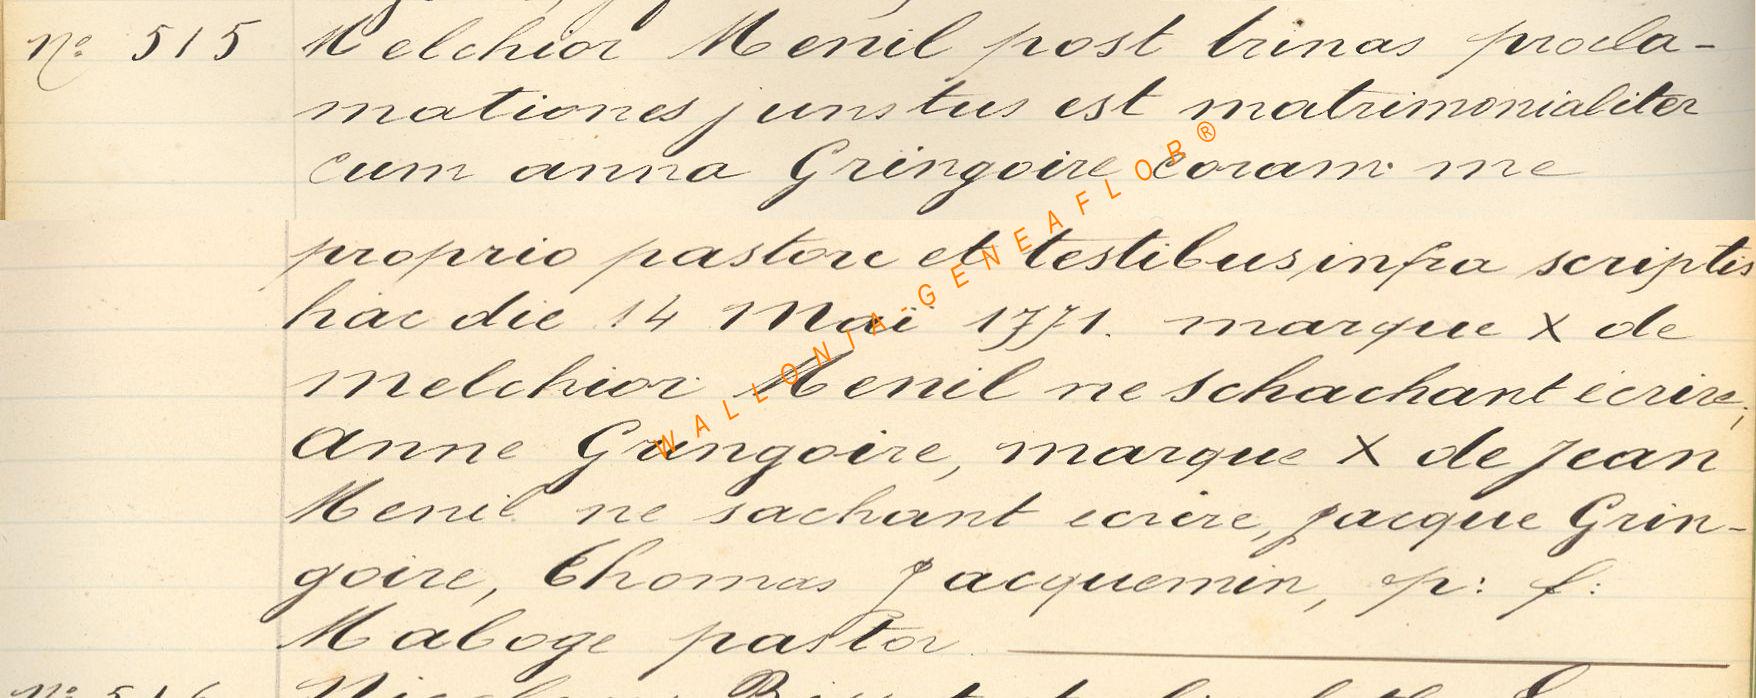 No 515 Melchior Menil post trinas procla-
mationes junstus est matrimonialiter
cum anna Gringoire coram me
proprio pastore et testibus infra scriptis
hac die 14 Maï 1771. marque X de
melchior Menil ne schachant écrire,
Anne Gringoire, marque X de Jean
Menil ne sachant ecrire, Jacque Grin-
goire, Thomas Jacquemin, p: f:
Maboge pastor
WALLONIA-GENEAFLOR®
No 516